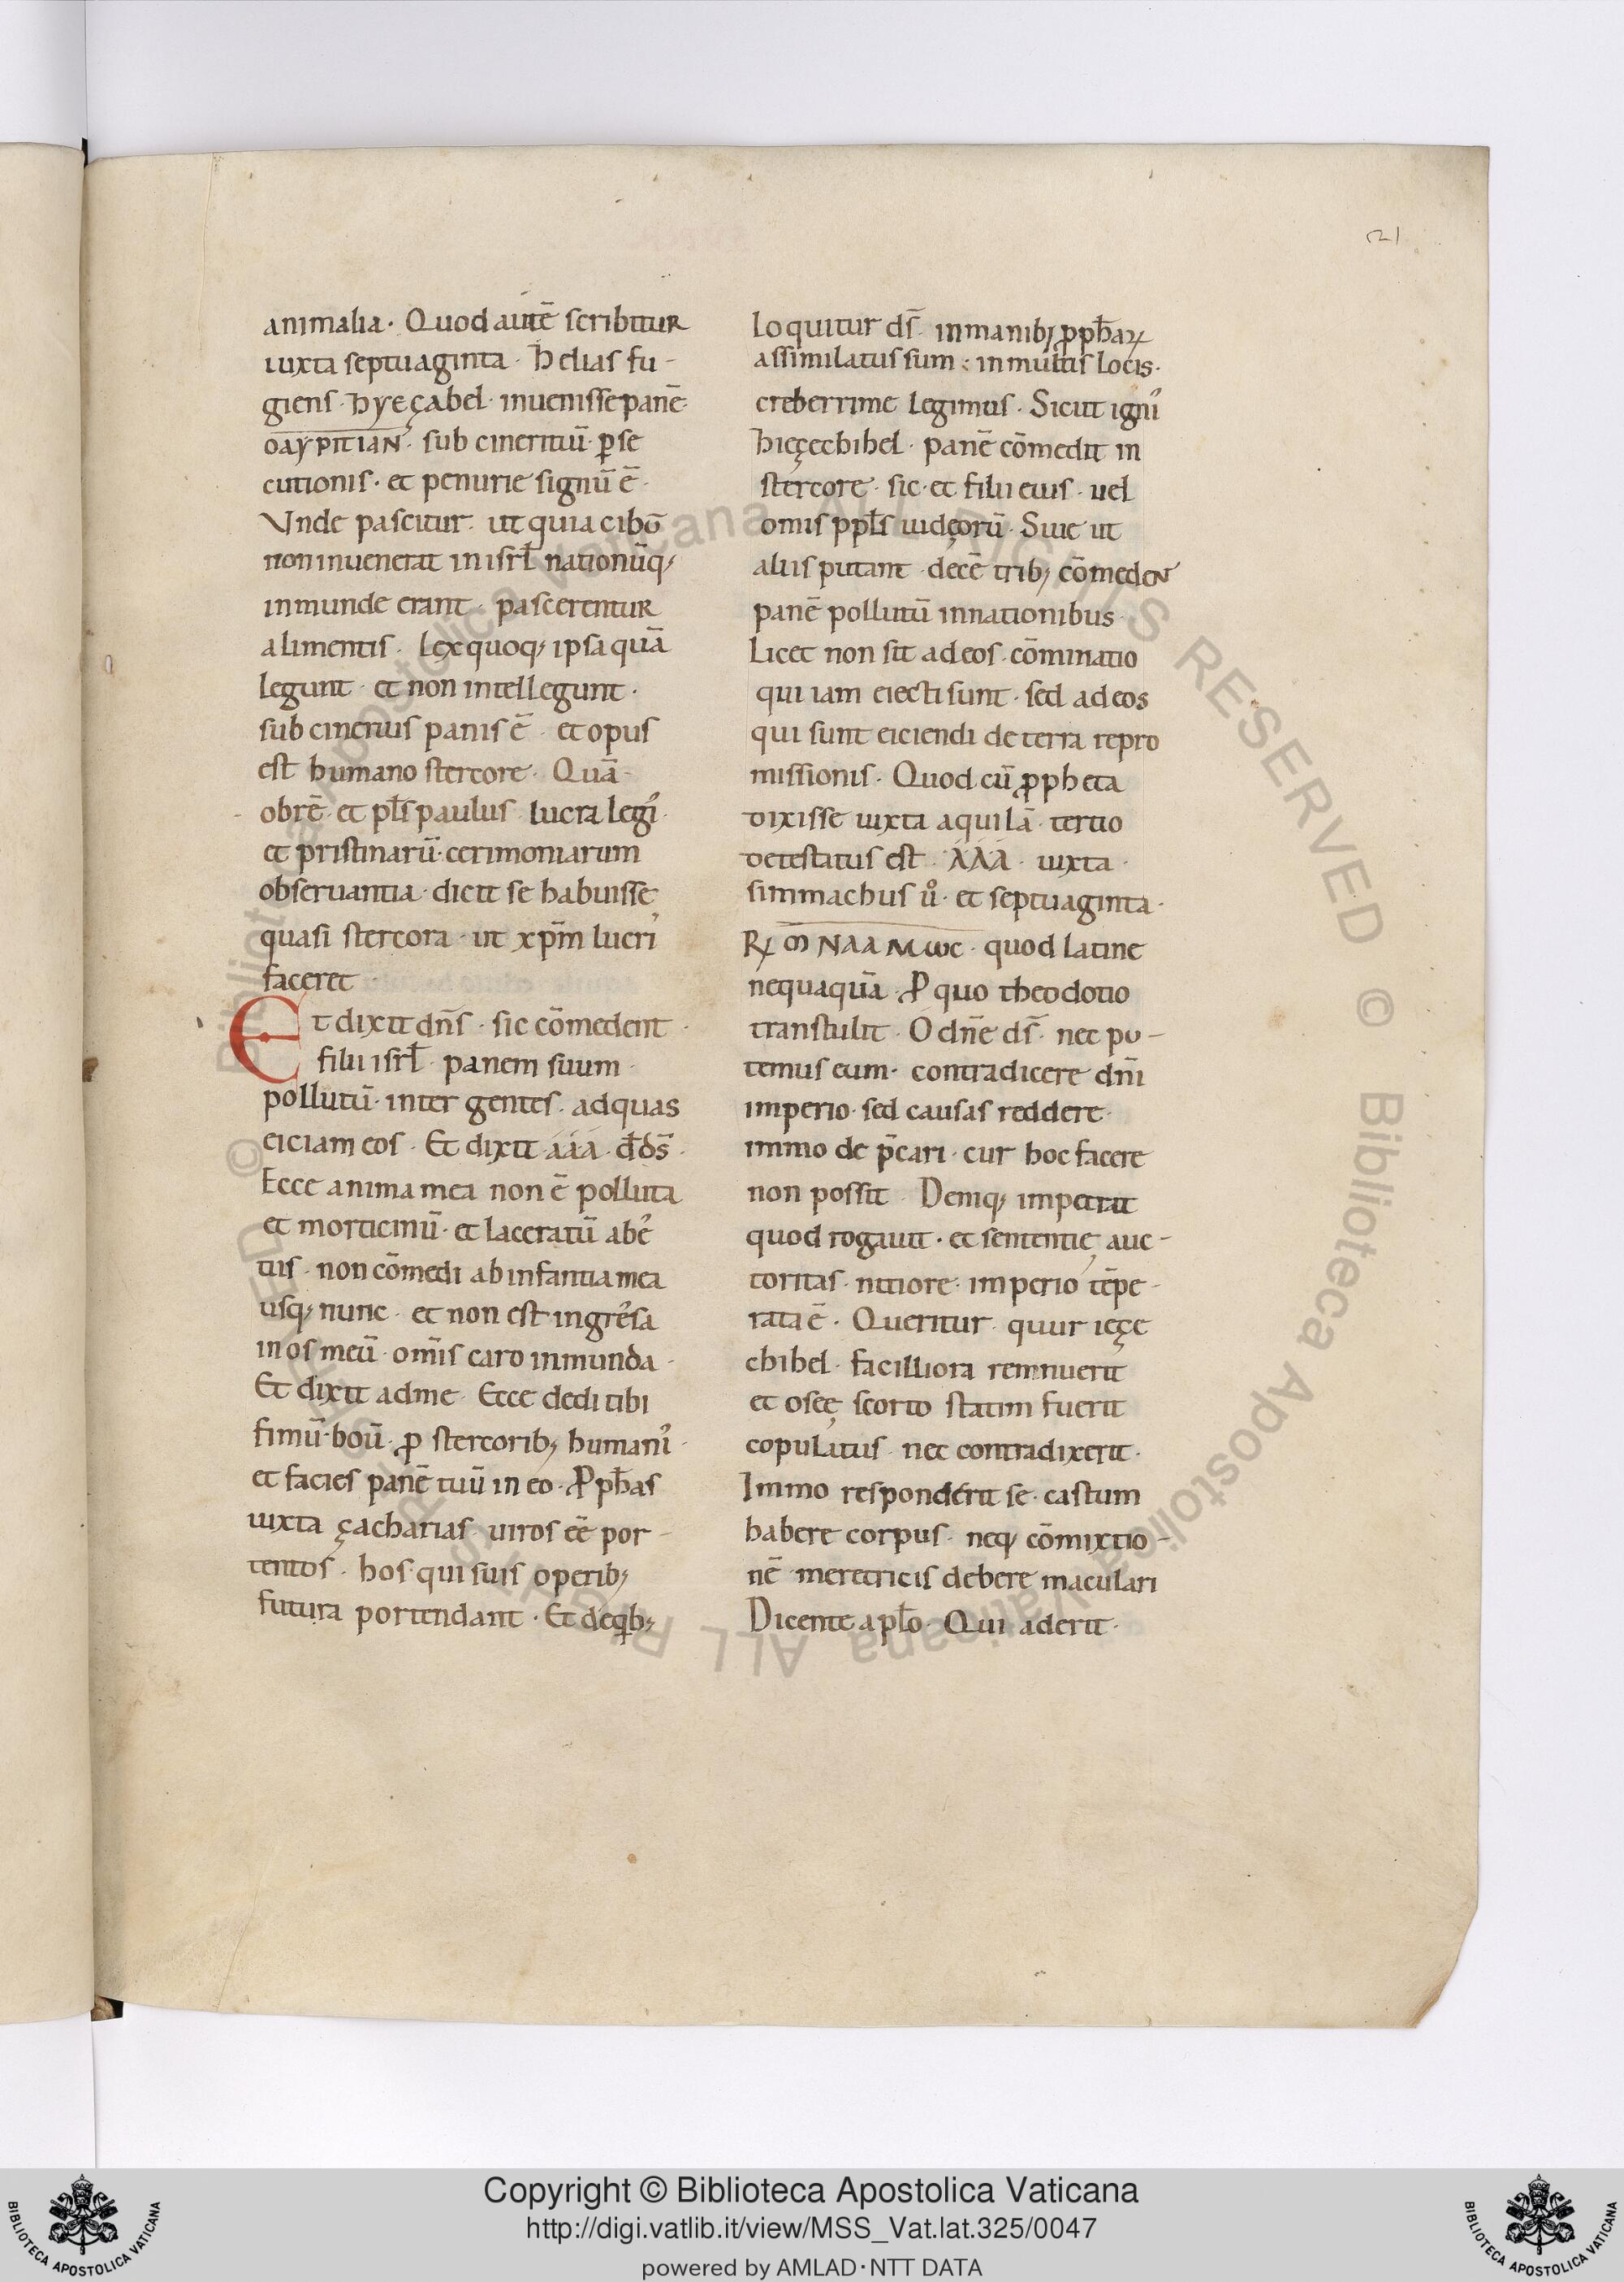 21
animalia· Quod autē scribitur
iuxta septuaginta· helias fu-
giens· hyeçabel· inuenisse panē
oaypitian· sub cineritiū· ꝑse
cutionis· et penurie signū ē·
Vnde pascitur· ut quia cibō
non inuenerat in isrł nationūq;
inmunde erant· pascerentur
alimentis· Lex quoq; ipsa quā
legunt· et non intellegunt·
sub cinerius panis ē· et opus
est humano stercore· Quā
obrē· et płs paulus· lucra legi᾽·
et pristinarū· cerimoniarum
obseruantia· dicit se habuisse
quasi stercora· ut xp̄m lucri᾽
faceret
Et dixit dn̄s· sic cōmedent·
filii isrł· panem suum·
pollutū· inter gentes· ad quas
eiciam eos· Et dixit· á á á· d̄ d̄s·
Ecce anima mea non ē polluta
et morticinū· et laceratū abe᾽
tiis· non cōmedi ab infantia mea
usq; nunc· et non est ingre᾽sa
in os meū· omīs caro inmunda·
Et dixit ad me· Ecce dedi tibi
fimū boū· ꝓ stercorib; humani᾽·
et facies panē tuū in eo· Ꝓph̄as
iuxta çacharias· uiros eē por-
tentos· hos qui suis operib;
futura portendant· Et de qib;
loquitur ds̄· in manib; ꝓph̄aꝝ
assimilatus sum· in multis locis·
creberrime legimus· Sicut igni᾽
hieçechihel· panē cōmedit in
stercore· sic· et filii eius· uel
omis ppłs iudęorū· Siue ut
aliis putant· decē trib; cōmeden
panē pollutū in nationibus·
Licet non sit ad eos· cōminatio
qui iam eiecti sunt· sed ad eos
qui sunt eiciendi de terra repro
missionis· Quod cū ꝓpheta
dixisse iuxta aquilā· tertio
detestatus est· á á á· iuxta·
simmachus u᷒· et septuaginta·
Rꝝ ꝏ NAAMωC· quod latine
nequaquā· Ꝓ quo theodotio
transtulit· O dn̄e ds̄· nec pu-
temus eum· contradicere dn̄i
imperio· sed causas reddere·
immo de p̄cari· cur hoc facere
non possit· Deniq; impetrat
quod rogauit· et sententię auc-
toritas· nitiore· imperio tēpe-
rata ē· Queritur· quur ieçe
chihel· facilliora remnuerit
et oseę scorto statim fuerit
copulatus· nec contradixerit·
Immo responderit se· castum
habere corpus· neq; cōmixtio-
nē meretricis debere maculari
Dicente apło· Qui aderit·
Copyright © Biblioteca Apostolica Vaticana
http://digi.vatlib.it/view/MSS_Vat.lat.325/0047
powered by AMLAD·NTT DATA
BIBLIOTECA APOSTOLICA VATICANA
BIBLIOTECA APOSTOLICA VATICANA
© Biblioteca Apostolica Vaticana ALL RIGHTS RESERVED © Biblioteca Apostolica Vaticana ALL RIGHTS RESERVED